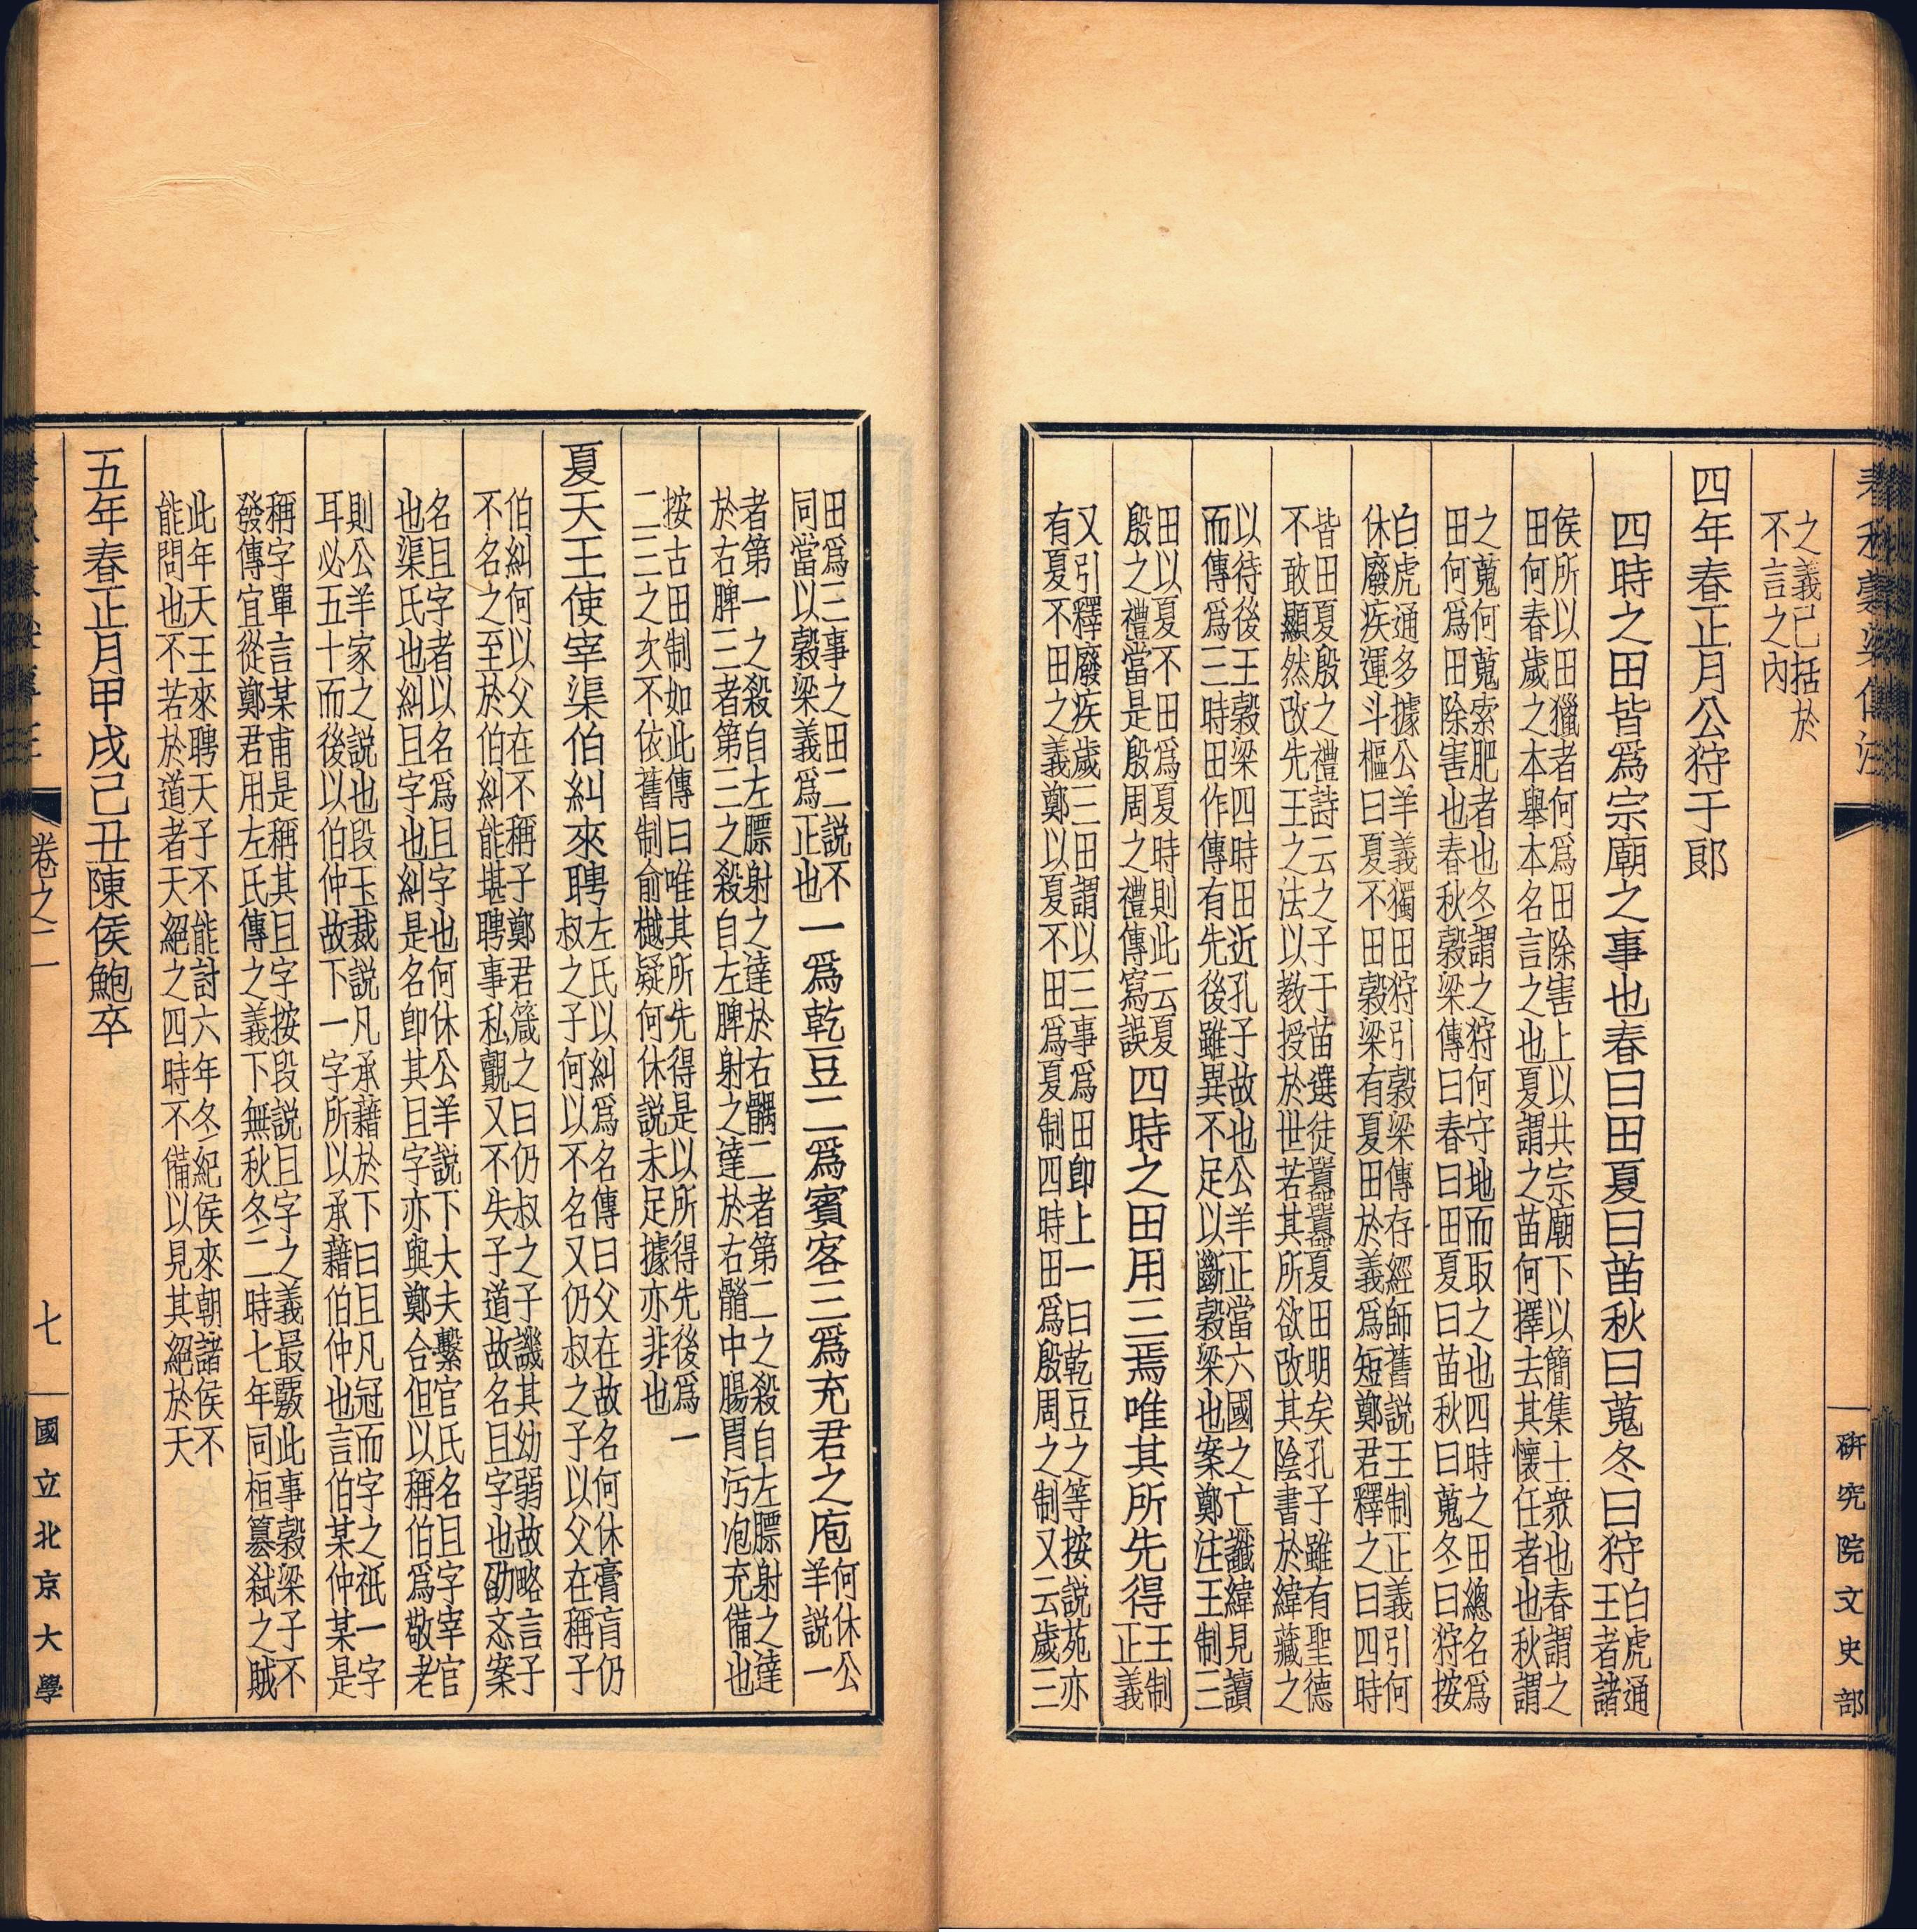 春秋穀梁傳注
研究院文史部
之義已括於
不言之內
四年春正月公狩于郎
四時之田皆爲宗廟之事也春曰田夏曰苗秋曰蒐冬曰狩
白虎通
王者諸
侯所以田獵者何爲田除害上以共宗廟下以簡集士衆也春謂之
田何春歲之本舉本名言之也夏謂之苗何擇去其懷任者也秋謂
之蒐何蒐索肥者也冬謂之狩何守地而取之也四時之田總名爲
田何爲田除害也春秋穀梁傳曰春曰田夏曰苗秋曰蒐冬曰狩按
白虎通多據公羊義獨田狩引穀梁傳存經師舊說王制正義引何
休廢疾運斗樞曰夏不田穀梁有夏田於義爲短鄭君釋之曰四時
皆田夏殷之禮詩云之子于苗選徒囂囂夏田明矣孔子雖有聖德
不敢顯然改先王之法以教授於世若其所欲改其陰書於緯藏之
以待後王穀梁四時田近孔子故也公羊正當六國之亡讖緯見讀
而傳爲三時田作傳有先後雖異不足以斷穀梁也案鄭注王制三
田以夏不田爲夏時則此云夏
殷之禮當是殷周之禮傳寫誤
四時之田用三焉唯其所先得
王制
正義
又引釋廢疾歲三田謂以三事爲田卽上一曰乾豆之等按説苑亦
有夏不田之義鄭以夏不田爲夏制四時田爲殷周之制又云歲三
田爲三事之田二說不
同當以穀梁義爲正也
一爲乾豆二爲賓客三爲充君之庖
何休公
羊説一
者第一之殺自左膘射之達於右髃二者第二之殺自左膘射之達
於右脾三者第三之殺自左脾射之達於右䯚中腸胃污泡充備也
按古田制如此傳曰唯其所先得是以所得先後爲一
二三之次不依舊制俞樾疑何休説未足據亦非也
夏天王使宰渠伯糾來聘
左氏以糾爲名傳曰父在故名何休膏肓仍
叔之子何以不名又仍叔之子以父在稱子
伯糾何以父在不稱子鄭君箴之曰仍叔之子譏其幼弱故略言子
不名之至於伯糾能堪聘事私覿又不失子道故名且字也劭忞案
名且字者以名爲且字也何休公羊説下大夫繫官氏名且字宰官
也渠氏也糾且字也糾是名卽其且字亦與鄭合但以稱伯爲敬老
則公羊家之説也段玉裁説凡承藉於下曰且凡冠而字之祇一字
耳必五十而後以伯仲故下一字所以承藉伯仲也言伯某仲某是
稱字單言某甫是稱其且字按段説且字之義最覈此事穀梁子不
發傳宜從鄭君用左氏傳之義下無秋冬二時七年同桓簒弒之賊
此年天王來聘天子不能討六年冬紀侯來朝諸侯不
能問也不若於道者天絕之四時不備以見其絕於天
五年春正月甲戌己丑陳侯鮑卒
卷之二
七
國立北京大學